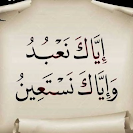 إِيَّاكَ نَعْبُدُ
وَإِيَّاكَ نَسْتَعِينُ